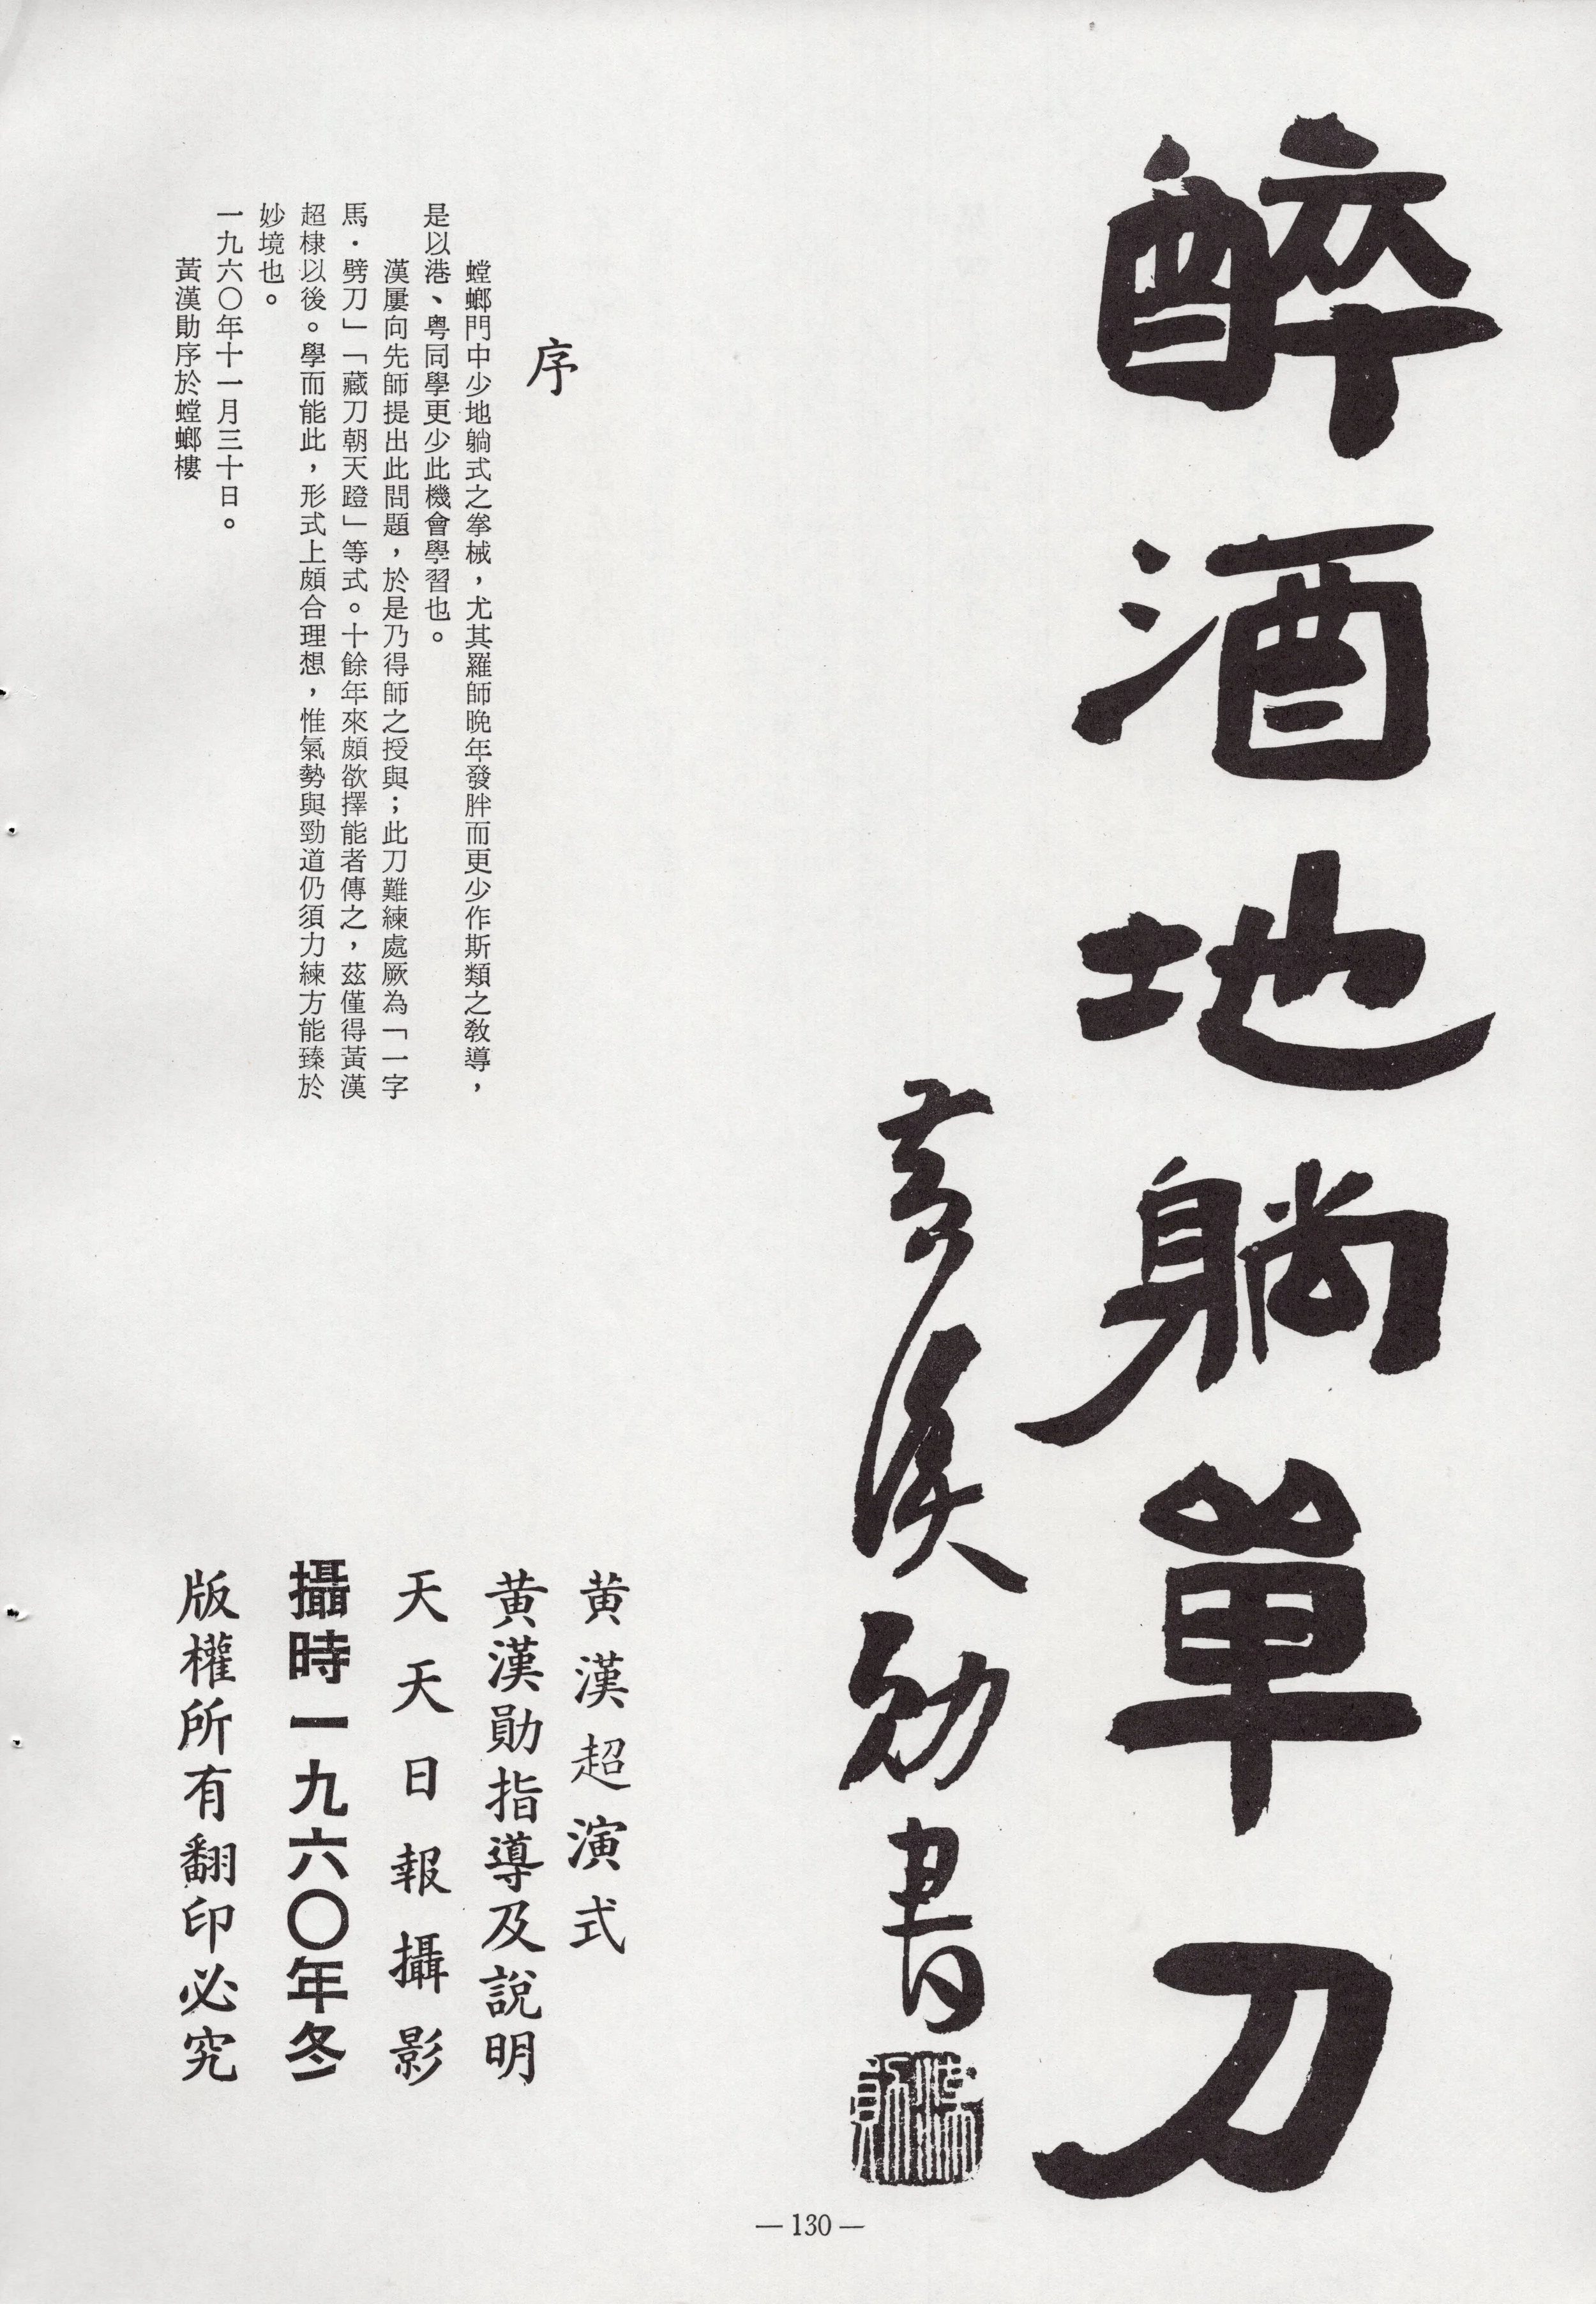 醉酒地躺單刀
黃漢勛書
序
螳螂門中少地躺式之拳械，尤其羅師晚年發胖而更少作斯類之教導，
是以港、粵同學更少此機會學習也。
漢屢向先師提出此問題，於是乃得師之授與；此刀難練處厥為「一字
馬・劈刀」「藏刀朝天蹬」等式。十餘年來頗欲擇能者傳之，茲僅得黃漢
超棣以後。學而能此，形式上頗合理想，惟氣勢與勁道仍須力練方能臻於
妙境也。
一九六〇年十一月三十日。
黃漢勛序於螳螂樓
黃漢超演式
黃漢勛指導及說明
天天日報攝影
攝時一九六〇年冬
版權所有翻印必究
—130—